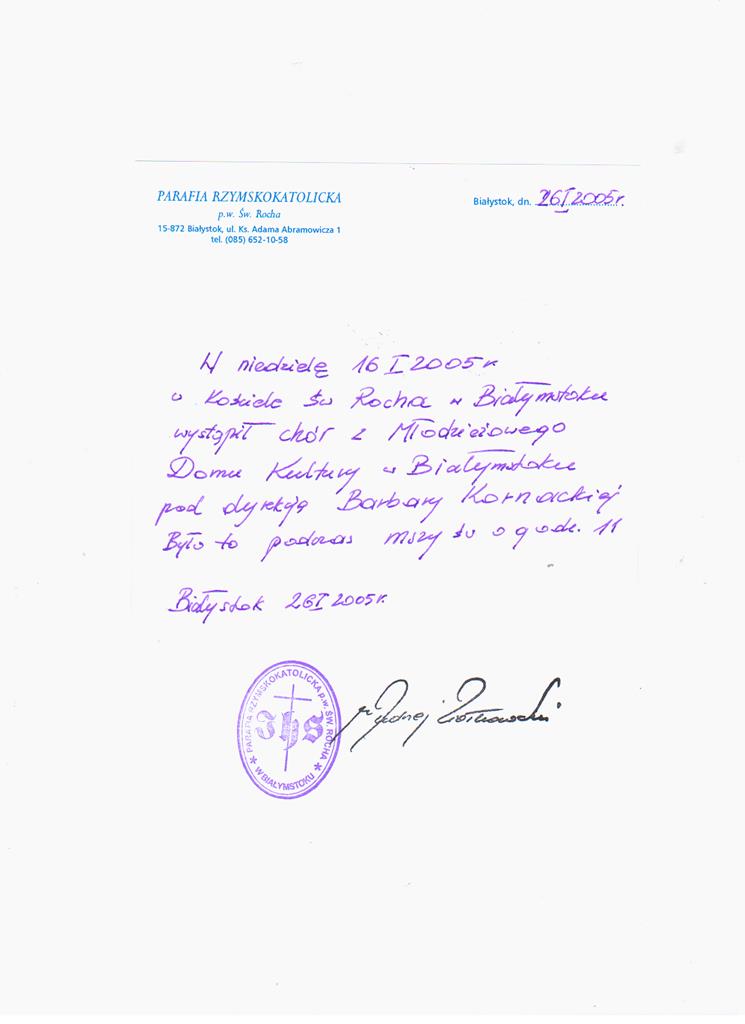 PARAFIA RZYMSKOKATOLICKA
p.w. Św. Rocha
15-872 Białystok, ul. Ks. Adama Abramowicza 1
tel. (085) 652-10-58
Białystok, dn. 26 I 2005r.
W niedzielę 16 I 2005 r
w Kościele św Rocha w Białymstoku
wystąpił chór z Młodzieżowego
Domu Kultury w Białymstoku
pod dyrekcją Barbary Kornackiej
Było to podczas mszy św o godz. 11
Białystok 26 I 2005 r.
PARAFIA RZYMSKOKATOLICKA p.w. ŚW. ROCHA
W BIAŁYMSTOKU